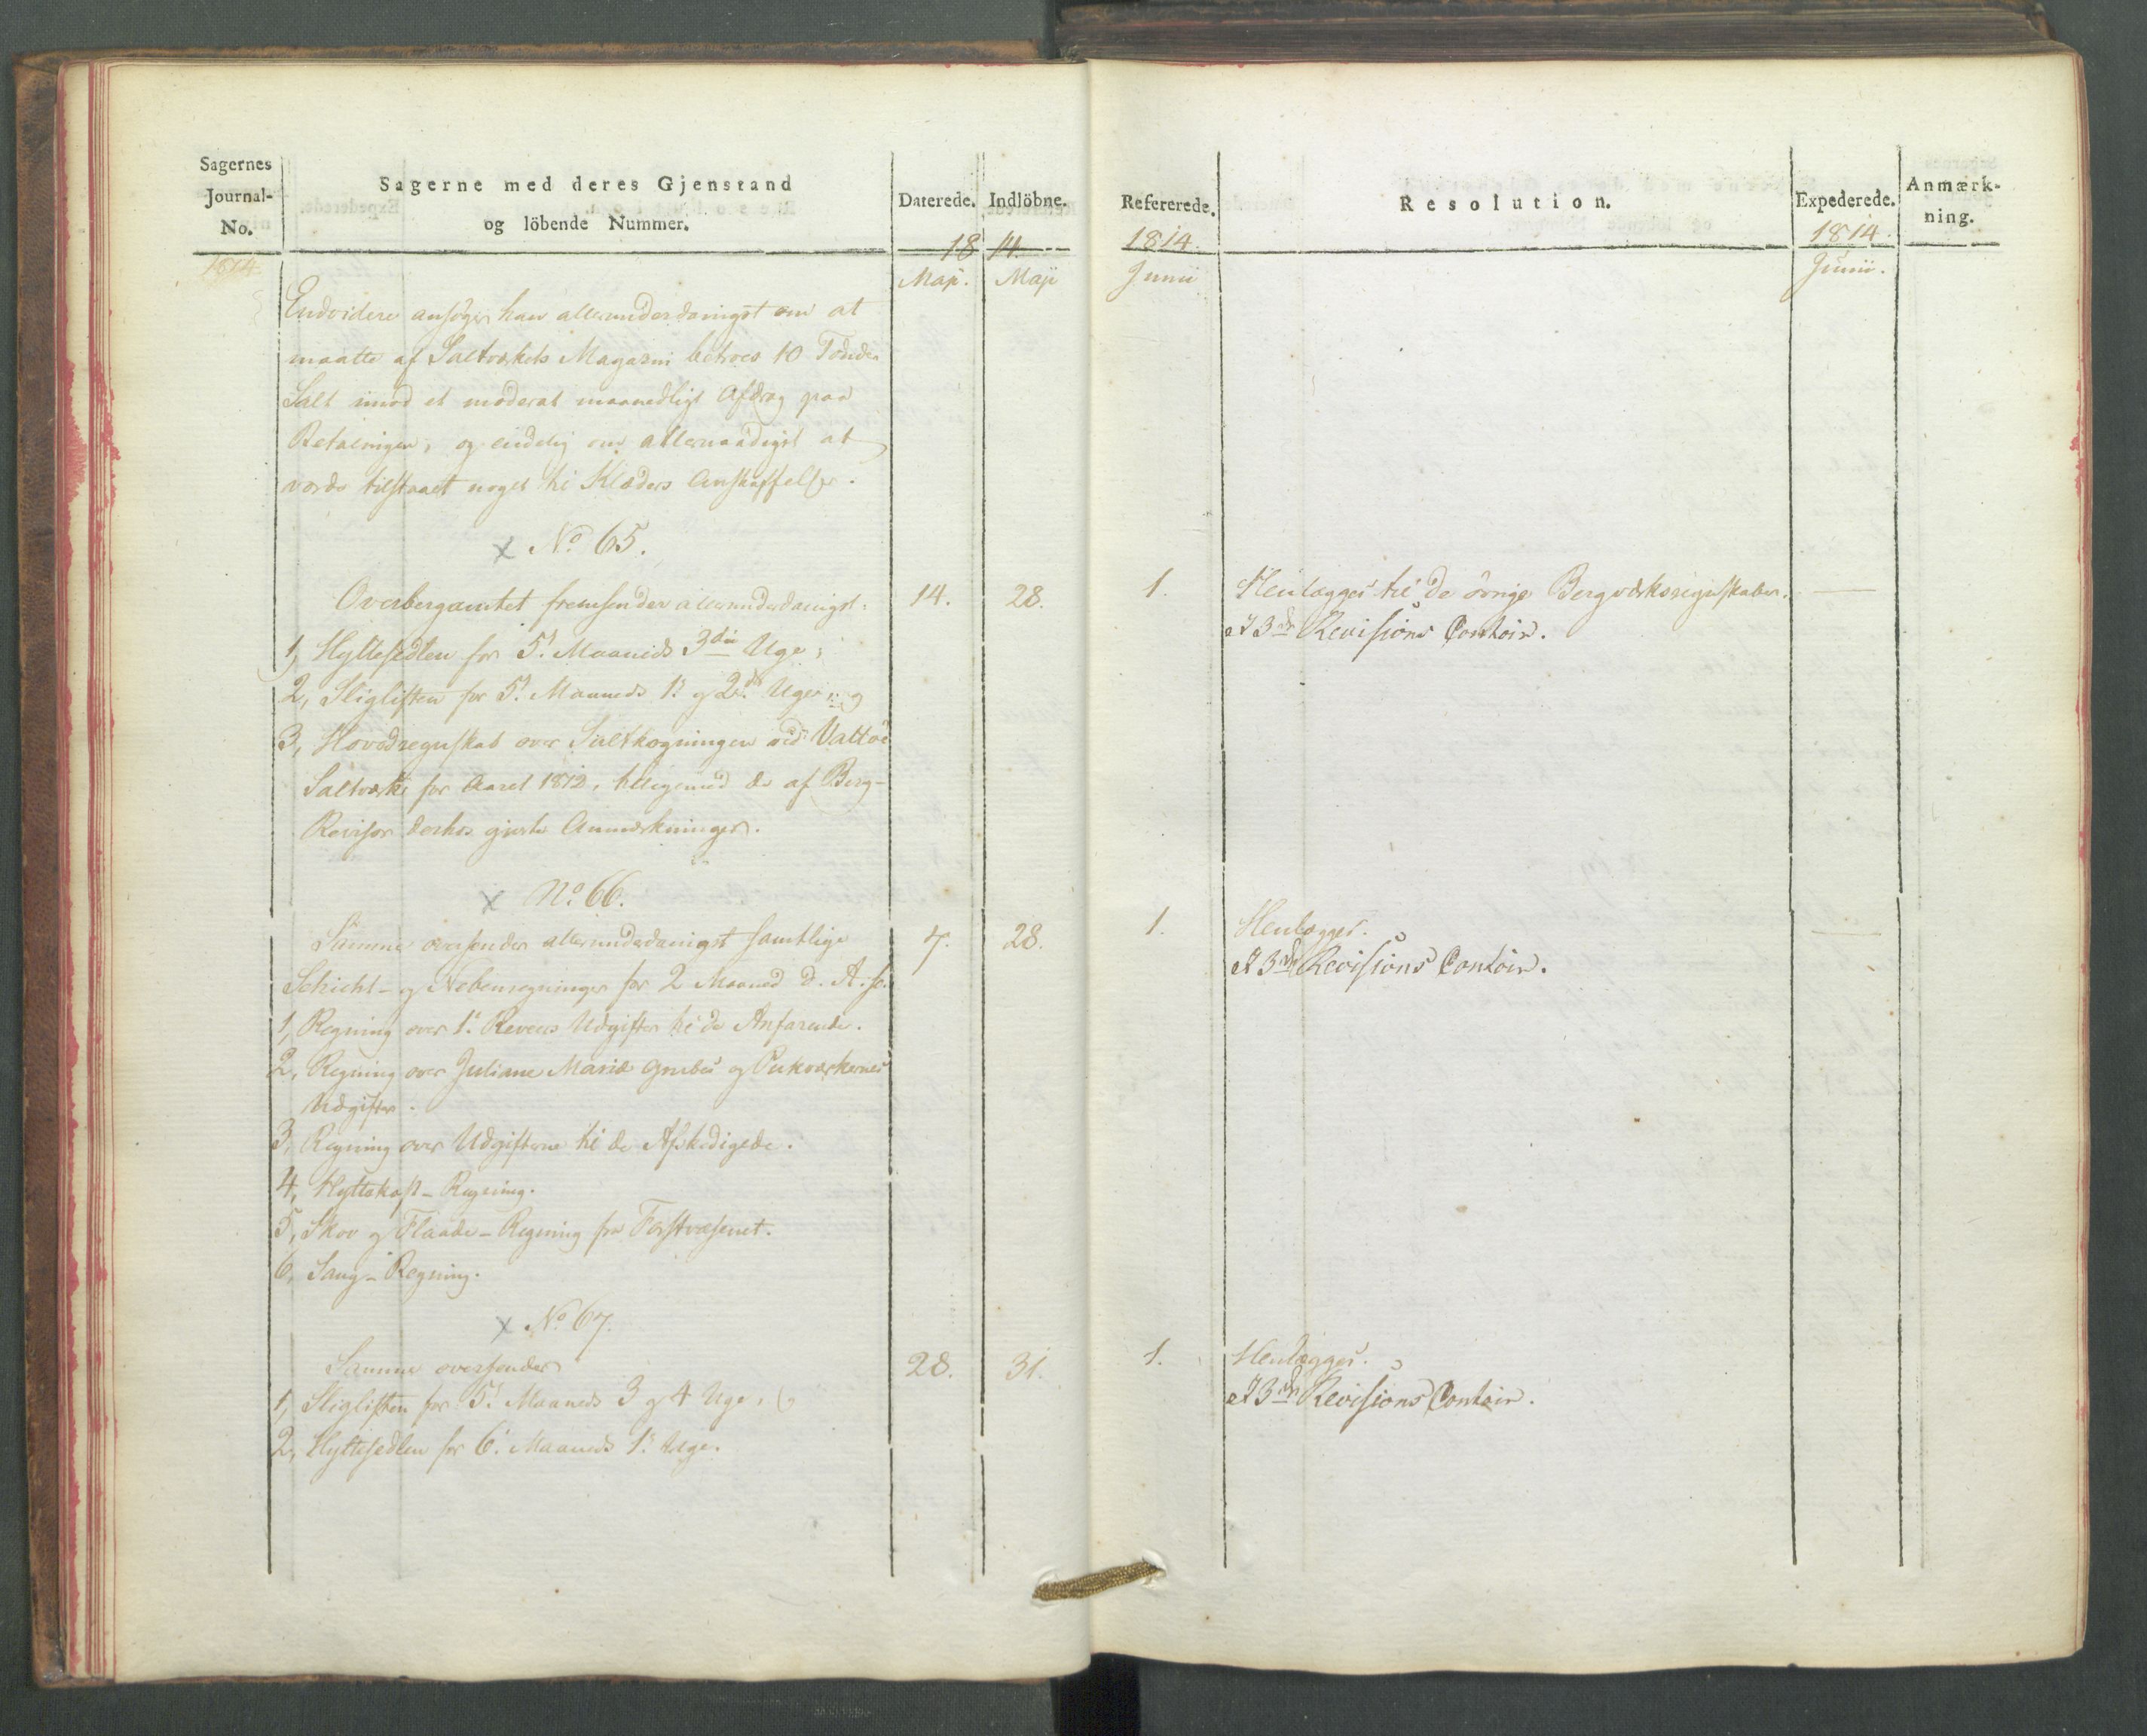 Sagernes
Journal-
No.
Sagerne med deres Gjenstand
og löbende Nummer.
Daterede.
Indlöbne.
1814.
18 14.
Maji.
Maji
Endvidere ansøger han allerunderdanigst om at
maatte af Saltværkets Magazin betroes 10 Tønder
Salt imod et moderat maanedligt Afdrag paa
Betalningen, og endelig om allernaadigst at
vorde tilstaaet noget til Klæders Anskaffelse.
x No 65.
Overbergamtet fremsender allerunderdanigst:
14.
28.
1, Hyttesedlen for 5t Maaneds 3die Uge;
2, Sligliften for 5t Maaneds 1s og 2den Uger; og
3, Hovedregnskab over Saltkogningen ved Valløe
Saltværk for Aaret 1812, tilligemed de af Berg-
Revisor derhos giorte Anmærkninger.
x No. 66.
Samme oversender allerunderdanigst samtlige
7.
28.
Schicht- og Nebenregninger for 2 Maaned d. A. so.
1, Regning over 1s Reveers Udgifter til de Anfarende.
2, Regning over Juliane Mariæ Grubes og Pukværkernes
Udgifter.
3, Regning over Udgifterne til de Afskedigede.
4, Hyttekost-Regning.
5, Skov og Flaade-Regning fra Forstvæsenet.
6, Saug-Regning.
x No 67.
Samme oversender
28.
31.
1, Sligliften for 5t Maaneds 3 og 4 Uge, og
2, Hyttesedlen for 6t Maaneds 1s Uge.
Refererede.
Resolution.
Expederede.
Anmærk-
ning.
1814.
1814.
Junii
Junii.
1.
Henlægges til de övrige Bergværksregnskaber.
3de Revisions Contoir.
1.
Henlægges.
3de Revisions Contoir.
1.
Henlægges.
3de Revisions Contoir.